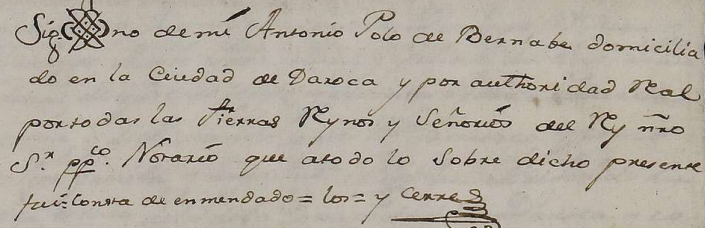 Sig no de mi Antonio Polo de Bernabe domicilia
do en la Ciudad de Daroca y por authoridad Real
por todas las tierras Rynos y Señorios del Ry ñro
S.r pp.co Notario que a todo lo sobre dicho presente
fui: Consta de enmendado = los = y Cerre